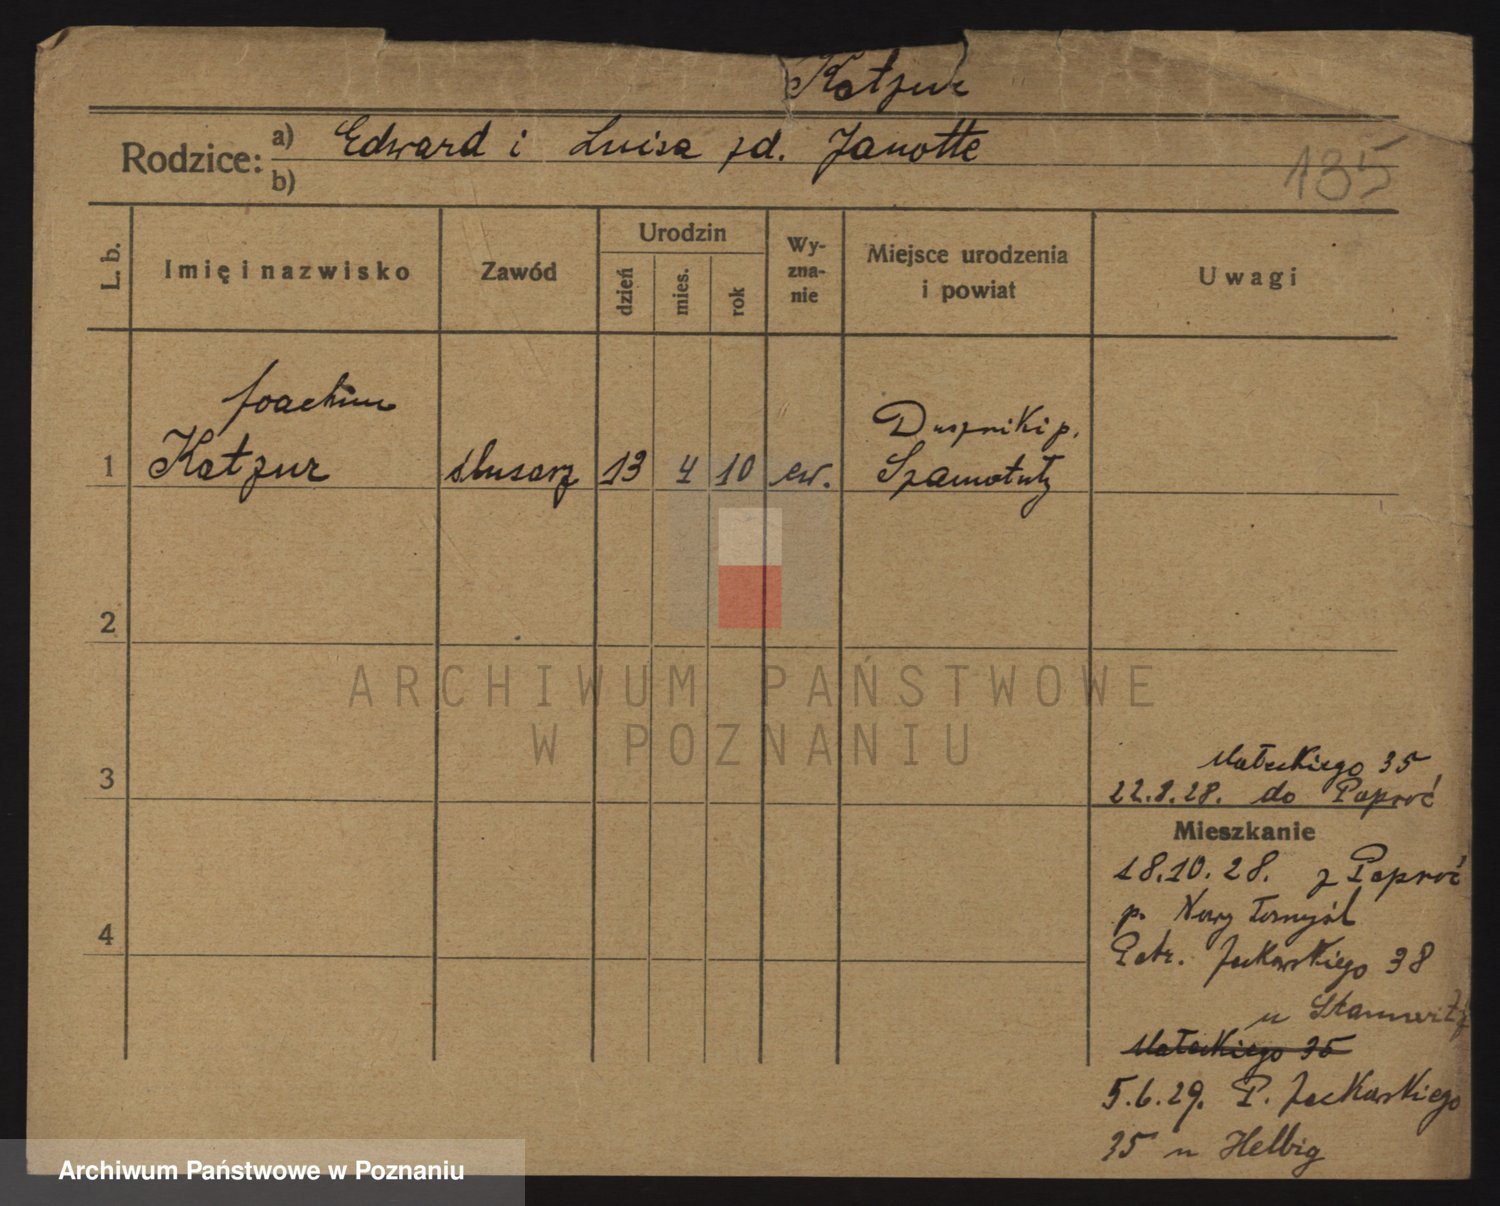 Katzur
Rodzice: a) Edward i Luisa zd. Janotte
b)
135
L. b.
Imię i nazwisko
Zawód
Urodzin
dzień
mies.
rok
Wy-
zna-
nie
Miejsce urodzenia
i powiat
Uwagi
Joachim
Duszniki p.
1 Katzur ślusarz 13 4 10 ew. Szamotuły
2
ARCHIWUM PAŃSTWOWE
W POZNANIU
3
Małeckiego 35
22.8.28. do Paproć
Mieszkanie
18.10.28. z Paproć
p. Nowy Tomyśl
4
Patr. Jackowskiego 38
u
Małeckiego 35
5.6.29. P. Jackowskiego
35 u Helbig
Archiwum Państwowe w Poznaniu